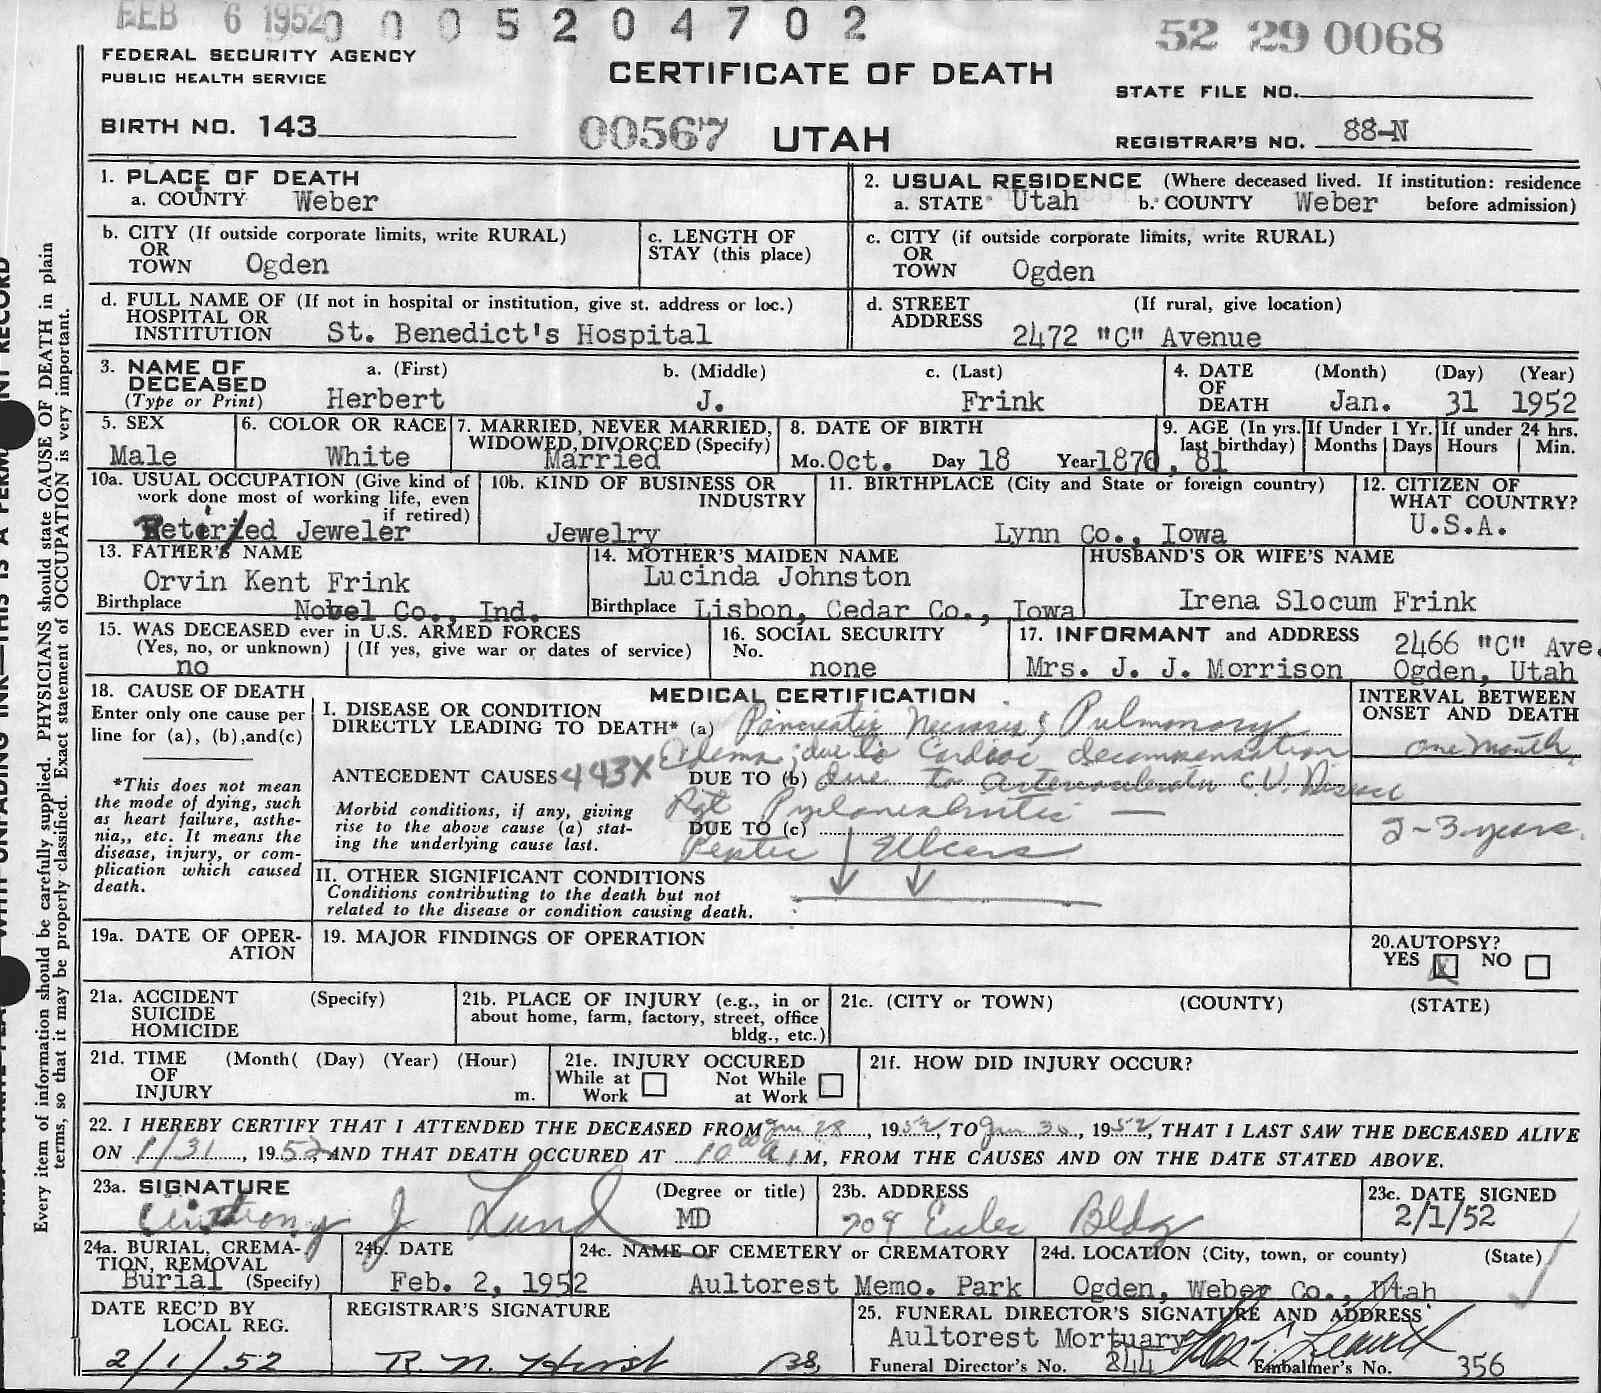 FEB 6 1952 0 0 0 5 2 0 4 7 0 2
52 29 0068
FEDERAL SECURITY AGENCY
PUBLIC HEALTH SERVICE
CERTIFICATE OF DEATH
STATE FILE NO.
BIRTH NO. 143
00567 UTAH
REGISTRAR'S NO. 88-N
1. PLACE OF DEATH
a. COUNTY Weber
2. USUAL RESIDENCE (Where deceased lived. If institution: residence
a. STATE Utah b. COUNTY Weber before admission)
b. CITY (If outside corporate limits, write RURAL)
OR
TOWN Ogden
c. LENGTH OF
STAY (this place)
c. CITY (if outside corporate limits, write RURAL)
OR
TOWN Ogden
d. FULL NAME OF (If not in hospital or institution, give st. address or loc.)
HOSPITAL OR
INSTITUTION St. Benedict's Hospital
d. STREET (If rural, give location)
ADDRESS
2472 "C" Avenue
3. NAME OF a. (First) b. (Middle) c. (Last)
DECEASED
(Type or Print) Herbert J. Frink
4. DATE (Month) (Day) (Year)
OF
DEATH Jan. 31 1952
5. SEX
Male
6. COLOR OR RACE
White
7. MARRIED, NEVER MARRIED,
WIDOWED, DIVORCED (Specify)
Married
8. DATE OF BIRTH
Mo. Oct. Day 18 Year 1870
9. AGE (In yrs. last birthday) 81
If Under 1 Yr.
Months Days
If under 24 hrs.
Hours Min.
10a. USUAL OCCUPATION (Give kind of
work done most of working life, even
if retired)
Reteried Jeweler
10b. KIND OF BUSINESS OR
INDUSTRY
Jewelry
11. BIRTHPLACE (City and State or foreign country)
Lynn Co., Iowa
12. CITIZEN OF
WHAT COUNTRY?
U.S.A.
13. FATHER'S NAME
Orvin Kent Frink
Birthplace Nobel Co., Ind.
14. MOTHER'S MAIDEN NAME
Lucinda Johnston
Birthplace Lisbon, Cedar Co., Iowa
HUSBAND'S OR WIFE'S NAME
Irena Slocum Frink
15. WAS DECEASED ever in U.S. ARMED FORCES
(Yes, no, or unknown) (If yes, give war or dates of service)
no
16. SOCIAL SECURITY
No.
none
17. INFORMANT and ADDRESS 2466 "C" Ave.
Mrs. J. J. Morrison Ogden, Utah
18. CAUSE OF DEATH
Enter only one cause per
line for (a), (b), and (c)
*This does not mean
the mode of dying, such
as heart failure, asthe-
nia,, etc. It means the
disease, injury, or com-
plication which caused
death.
MEDICAL CERTIFICATION
I. DISEASE OR CONDITION
DIRECTLY LEADING TO DEATH* (a) Pancreatic Necrosis & Pulmonary
Edema; due to Cardiac decompensation
ANTECEDENT CAUSES 443X DUE TO (b) due to arteriosclerotic C.V. Disease
Morbid conditions, if any, giving
rise to the above cause (a) stat-
ing the underlying cause last.
Rgt Pyelonephritic —
DUE TO (c)
Peptic Ulcers
II. OTHER SIGNIFICANT CONDITIONS
Conditions contributing to the death but not
related to the disease or condition causing death.
INTERVAL BETWEEN
ONSET AND DEATH
one month
2-3 years.
19a. DATE OF OPER-
ATION
19. MAJOR FINDINGS OF OPERATION
20. AUTOPSY?
YES X NO
21a. ACCIDENT (Specify)
SUICIDE
HOMICIDE
21b. PLACE OF INJURY (e.g., in or
about home, farm, factory, street, office
bldg., etc.)
21c. (CITY or TOWN) (COUNTY) (STATE)
21d. TIME (Month( (Day) (Year) (Hour)
OF
INJURY m.
21e. INJURY OCCURED
While at Work Not While at Work
21f. HOW DID INJURY OCCUR?
22. I HEREBY CERTIFY THAT I ATTENDED THE DECEASED FROM Jan 28, 1952, TO Jan 30, 1952, THAT I LAST SAW THE DECEASED ALIVE
ON 1/31, 1952, AND THAT DEATH OCCURED AT 10 00 A.M, FROM THE CAUSES AND ON THE DATE STATED ABOVE.
23a. SIGNATURE (Degree or title)
Anthony J Lund MD
23b. ADDRESS
709 Eccles Bldg
23c. DATE SIGNED
2/1/52
24a. BURIAL, CREMA-
TION, REMOVAL
Burial (Specify)
24b. DATE
Feb. 2, 1952
24c. NAME OF CEMETERY or CREMATORY
Aultorest Memo. Park
24d. LOCATION (City, town, or county) (State)
Ogden, Weber Co., Utah
DATE REC'D BY
LOCAL REG.
2/1/52
REGISTRAR'S SIGNATURE
R. N. Hirst
25. FUNERAL DIRECTOR'S SIGNATURE AND ADDRESS
Aultorest Mortuary
Funeral Director's No. 244 Embalmer's No. 356
Every item of information should be carefully supplied. PHYSICIANS should state CAUSE OF DEATH in plain
terms, so that it may be properly classified. Exact statement of OCCUPATION is very important.